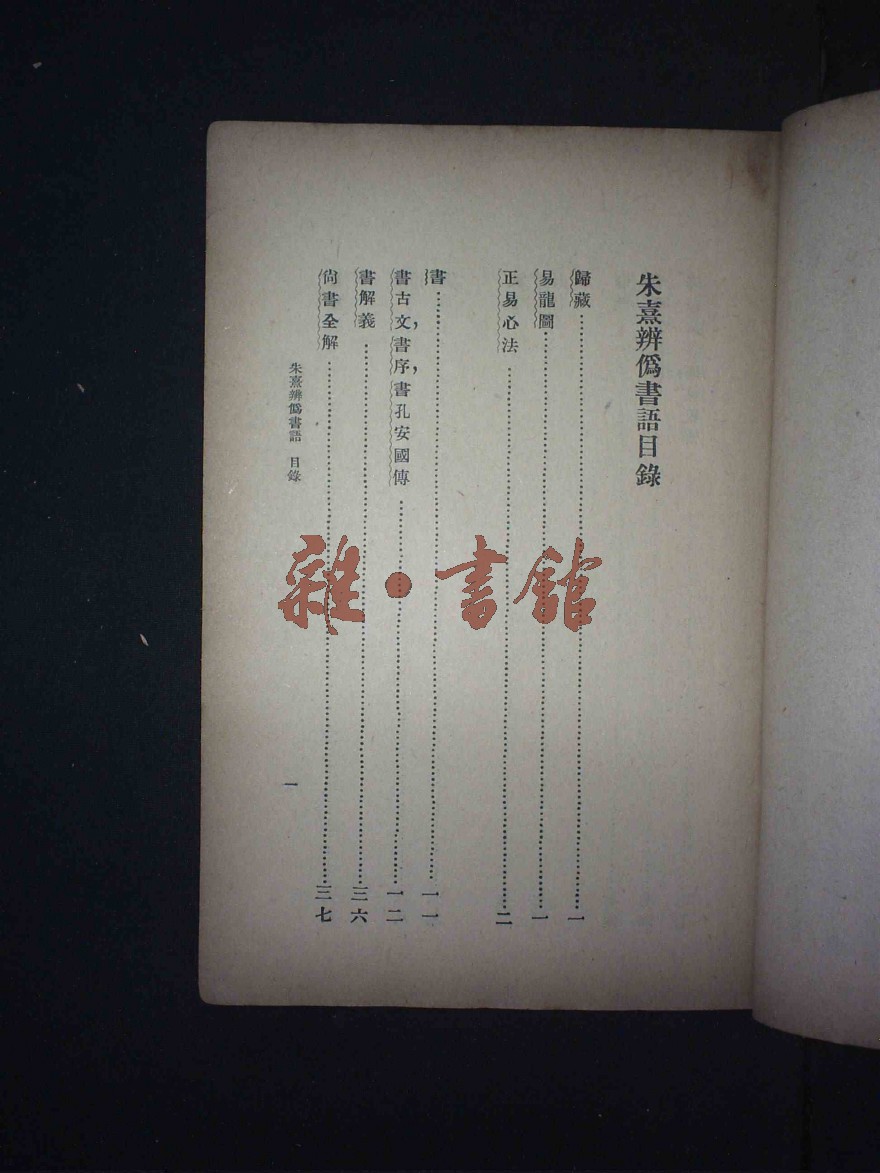 朱熹辨僞書語目錄
歸藏⋯⋯⋯⋯一
易龍圖⋯⋯⋯⋯一
正易心法⋯⋯⋯⋯二
書⋯⋯⋯⋯一一
書古文，書序，書孔安國傳⋯⋯⋯⋯一二
書解義⋯⋯⋯⋯三六
尙書全解⋯⋯⋯⋯三七
朱熹辨僞書語 目錄
一
雜·書館